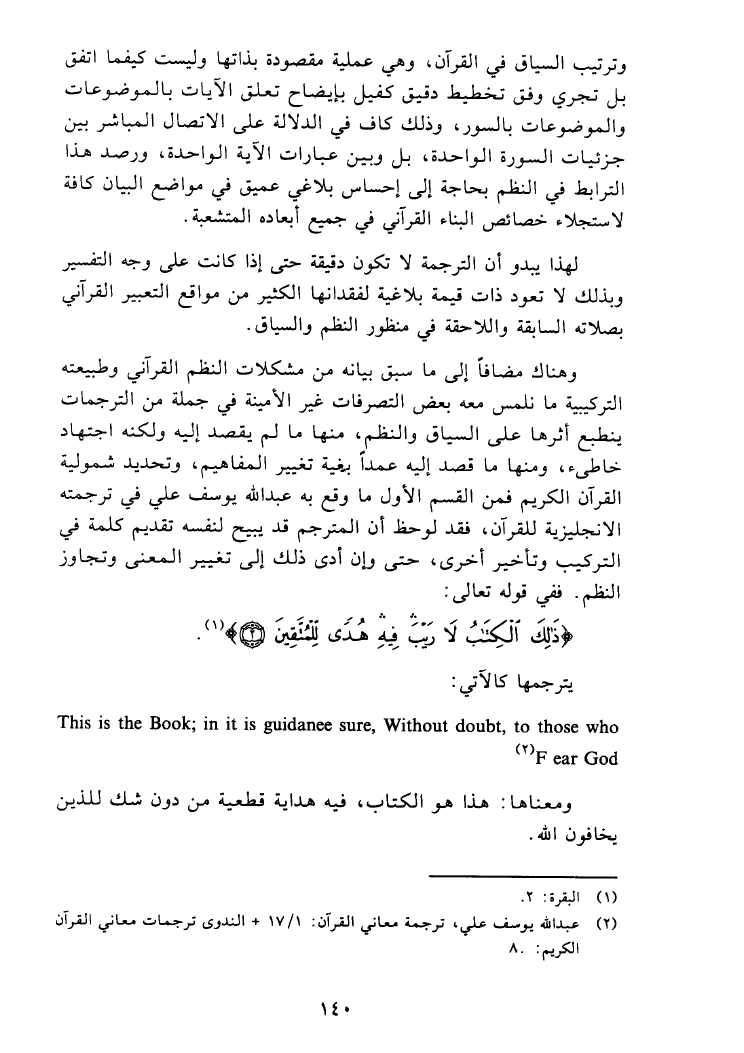 وترتيب السياق في القرآن، وهي عملية مقصودة بذاتها وليست كيفما اتفق
بل تجري وفق تخطيط دقيق كفيل بإيضاح تعلق الآيات بالموضوعات
والموضوعات بالسور، وذلك كاف في الدلالة على الاتصال المباشر بين
جزئيات السورة الواحدة، بل وبين عبارات الآية الواحدة، ورصد هذا
الترابط في النظم بحاجة إلى إحساس بلاغي عميق في مواضع البيان كافة
لاستجلاء خصائص البناء القرآني في جميع أبعاده المتشعبة.
لهذا يبدو أن الترجمة لا تكون دقيقة حتى إذا كانت على وجه التفسير
وبذلك لا تعود ذات قيمة بلاغية لفقدانها الكثير من مواقع التعبير القرآني
بصلاته السابقة واللاحقة في منظور النظم والسياق.
وهناك مضافاً إلى ما سبق بيانه من مشكلات النظم القرآني وطبيعته
التركيبية ما نلمس معه بعض التصرفات غير الأمينة في جملة من الترجمات
ينطبع أثرها على السياق والنظم، منها ما لم يقصد إليه ولكنه اجتهاد
خاطىء، ومنها ما قصد إليه عمداً بغية تغيير المفاهيم، وتحديد شمولية
القرآن الكريم فمن القسم الأول ما وقع به عبدالله يوسف علي في ترجمته
الانجليزية للقرآن، فقد لوحظ أن المترجم قد يبيح لنفسه تقديم كلمة في
التركيب وتأخير أخرى، حتى وإن أدى ذلك إلى تغيير المعنى وتجاوز
النظم. ففي قوله تعالى:
﴿ذَٰلِكَ ٱلْكِتَٰبُ لَا رَيْبَ ۛ فِيهِ ۛ هُدًى لِّلْمُتَّقِينَ ٢﴾(١).
يترجمها كالآتي:
This is the Book; in it is guidanee sure, Without doubt, to those who
(٢)F ear God
ومعناها: هذا هو الكتاب، فيه هداية قطعية من دون شك للذين
يخافون الله.
(١) البقرة: ٢.
(٢) عبدالله يوسف علي، ترجمة معاني القرآن: ١٧/١ + الندوى ترجمات معاني القرآن
الكريم: ٨.
١٤٠